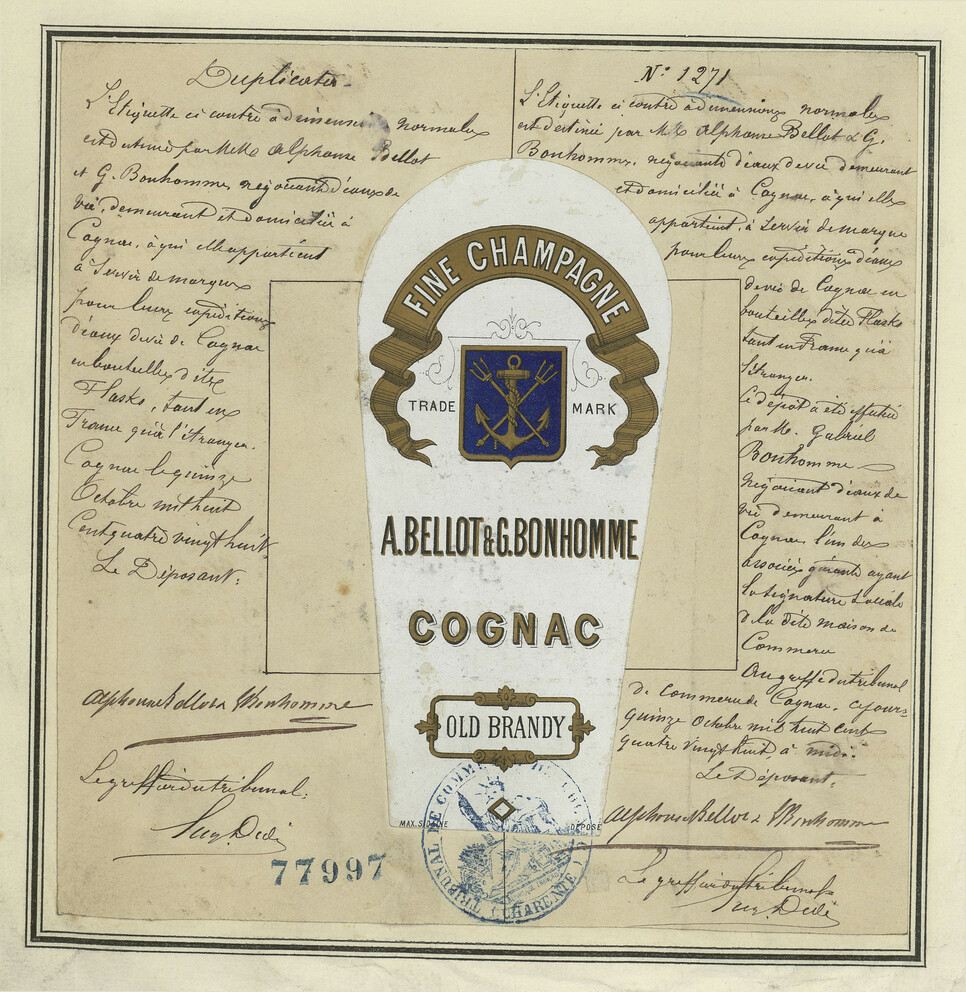 Duplicata
L'Etiquette ci contre à dimensions normales
est destinée par MM. Alphonse Bellot
et G. Bonhomme, négociants d'eaux de
vie, demeurant et domiciliés à
Cognac, à qui elle appartient
à servir de marque
pour leurs expéditions
d'eaux de vie de Cognac
en bouteilles dites
Flasks, tant en
France qu'à l'étranger.
Cognac le quinze
Octobre mil huit
Cent quatre vingt huit
Le Déposant:
Alphonse Bellot & Bonhomme
Le greffier du tribunal:
77997
N° 1271
L'Etiquette ci contre à dimensions normales
est destinée par MM. Alphonse Bellot & G.
Bonhomme, négociants d'eaux de vie demeurant
et domiciliés à Cognac, à qui elle
appartient, à servir de marque
pour leurs expéditions d'eaux
de vie de Cognac en
bouteilles dites Flasks
tant en France qu'à
l'étranger.
Ce dépôt a été effectué
par M. Gabriel
Bonhomme
Négociant d'eaux de
vie demeurant à
Cognac l'un des
associés gérants ayant
la signature sociale
de la dite maison de
Commerce
Au greffe du tribunal
de Commerce de Cognac, ce jour
quinze Octobre mil huit cent
quatre vingt huit, à midi.
Le Déposant,
Alphonse Bellot & Bonhomme
Le greffier du tribunal
FINE CHAMPAGNE
TRADE MARK
A. BELLOT & G. BONHOMME
COGNAC
OLD BRANDY
MAX. DÉPOSÉ
TRIBUNAL DE COMM CHARENTE